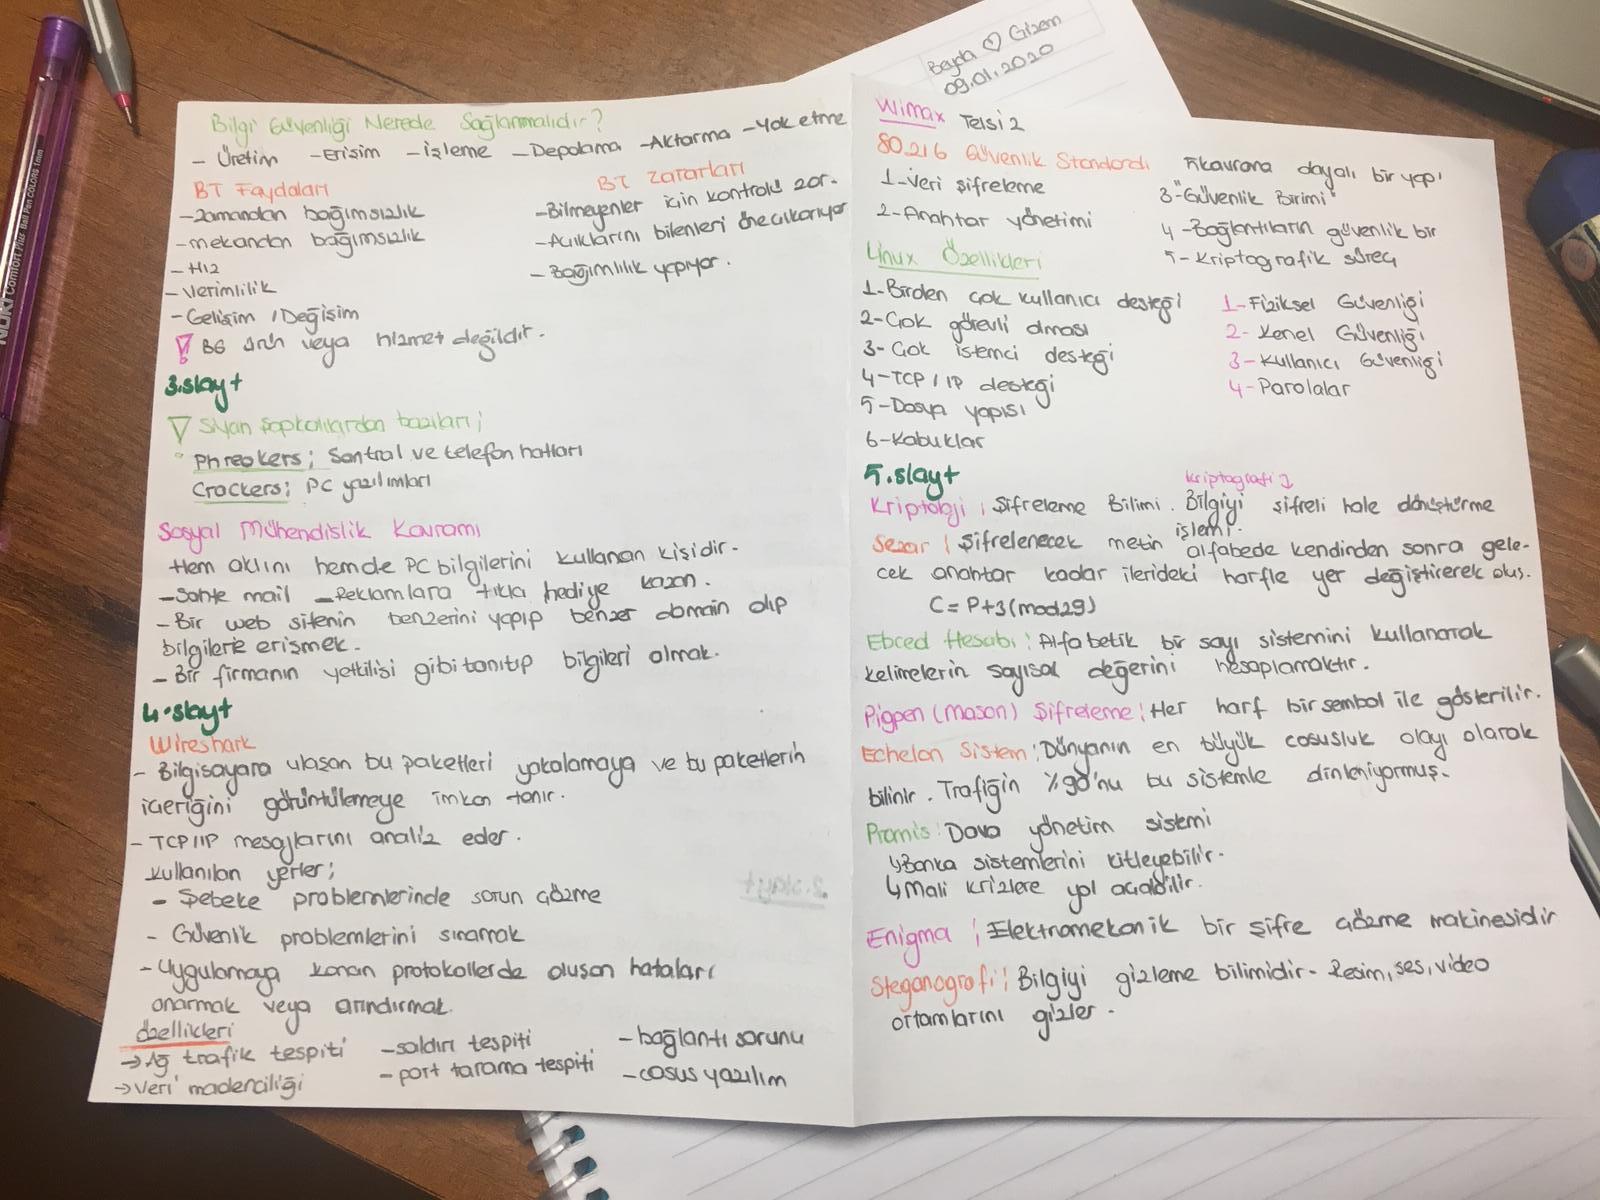 Beyda ♡ Gizem
09.01.2020
Bilgi Güvenliği Nerede Sağlanmalıdır?
- Üretim - Erişim - İşleme - Depolama - Aktarma - Yok etme
BT Faydaları
- Zamandan bağımsızlık
- mekandan bağımsızlık
- Hız
- Verimlilik
- Gelişim / Değişim
BT Zararları
- Bilmeyenler için kontrolü zor.
- Açıklarını bilenleri öne çıkarıyor
- Bağımlılık yapıyor.
BG ürün veya hizmet değildir.
3.slayt
Siyah Şapkalılardan bazıları;
Phreakers; Santral ve telefon hatları
Crackers; PC yazılımları
Sosyal Mühendislik Kavramı
Hem aklını hemde PC bilgilerini kullanan kişidir.
- Sahte mail - Reklamlara tıkla hediye kazan.
- Bir web sitenin benzerini yapıp benzer domain alıp
bilgilere erişmek.
- Bir firmanın yetkilisi gibi tanıtıp bilgileri almak.
4.slayt
Wireshark
- Bilgisayara ulaşan bu paketleri yakalamaya ve bu paketlerin
içeriğini görüntülemeye imkan tanır.
- TCP/IP mesajlarını analiz eder.
Kullanılan yerler;
- Şebeke problemlerinde sorun çözme
- Güvenlik problemlerini sınamak
- Uygulamaya konan protokollerde oluşan hataları
onarmak veya arındırmak.
özellikleri
→ Ağ trafik tespiti - saldırı tespiti - bağlantı sorunu
→ Veri madenciliği - port tarama tespiti - casus yazılım
2.slayt
Wimax Telsiz
80216 Güvenlik Standardı
1-Veri şifreleme
2-Anahtar yönetimi
dayalı bir yapı
3-"Güvenlik Birimi"
4-Bağlantıların güvenlik bir
5-Kriptografik süreç
Linux Özellikleri
1-Birden çok kullanıcı desteği
2-Çok görevli olması
3-Çok istemci desteği
4-TCP/IP desteği
5-Dosya yapısı
6-Kabuklar
1-Fiziksel Güvenliği
2-Kenel Güvenliği
3-Kullanıcı Güvenliği
4-Parolalar
5.slayt
Kriptografi
Kriptoloji; Şifreleme Bilimi. Bilgiyi şifreli hale dönüştürme
işlemi.
Sezar; Şifrelenecek metin alfabede kendinden sonra gele-
cek anahtar kadar ilerideki harfle yer değiştirerek oluş.
C = P+3 (mod29)
Ebced Hesabı: Alfabetik bir sayı sistemini kullanarak
kelimelerin sayısal değerini hesaplamaktır.
Pigpen (Mason) Şifreleme: Her harf bir sembol ile gösterilir.
Echelon Sistem: Dünyanın en büyük casusluk olayı olarak
bilinir. Trafiğin %90'nu bu sistemle dinleniyormuş.
Promis: Dava yönetim sistemi
↳ Banka sistemlerini kitleyebilir.
↳ Mali krizlere yol açabilir.
Enigma; Elektromekanik bir şifre çözme makinesidir
Steganografi; Bilgiyi gizleme bilimidir. Resim, ses, video
ortamlarını gizler.